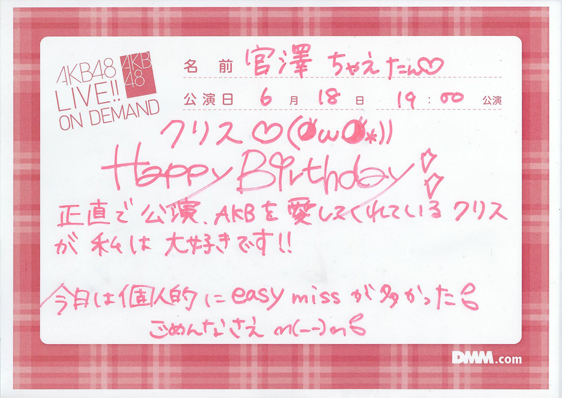 AKB48
LIVE!!
ON DEMAND
AKB
48
名前 宮澤 ちゃえたん♡
公演日 6月18日 19:00 公演
クリス♡(●ω●*))
Happy Birthday!!
正直で公演、AKBを愛してくれているクリス
が私は大好きです!!
今日は個人的にeasy missが多かった
ごめんなさえ m(--)m
DMM.com